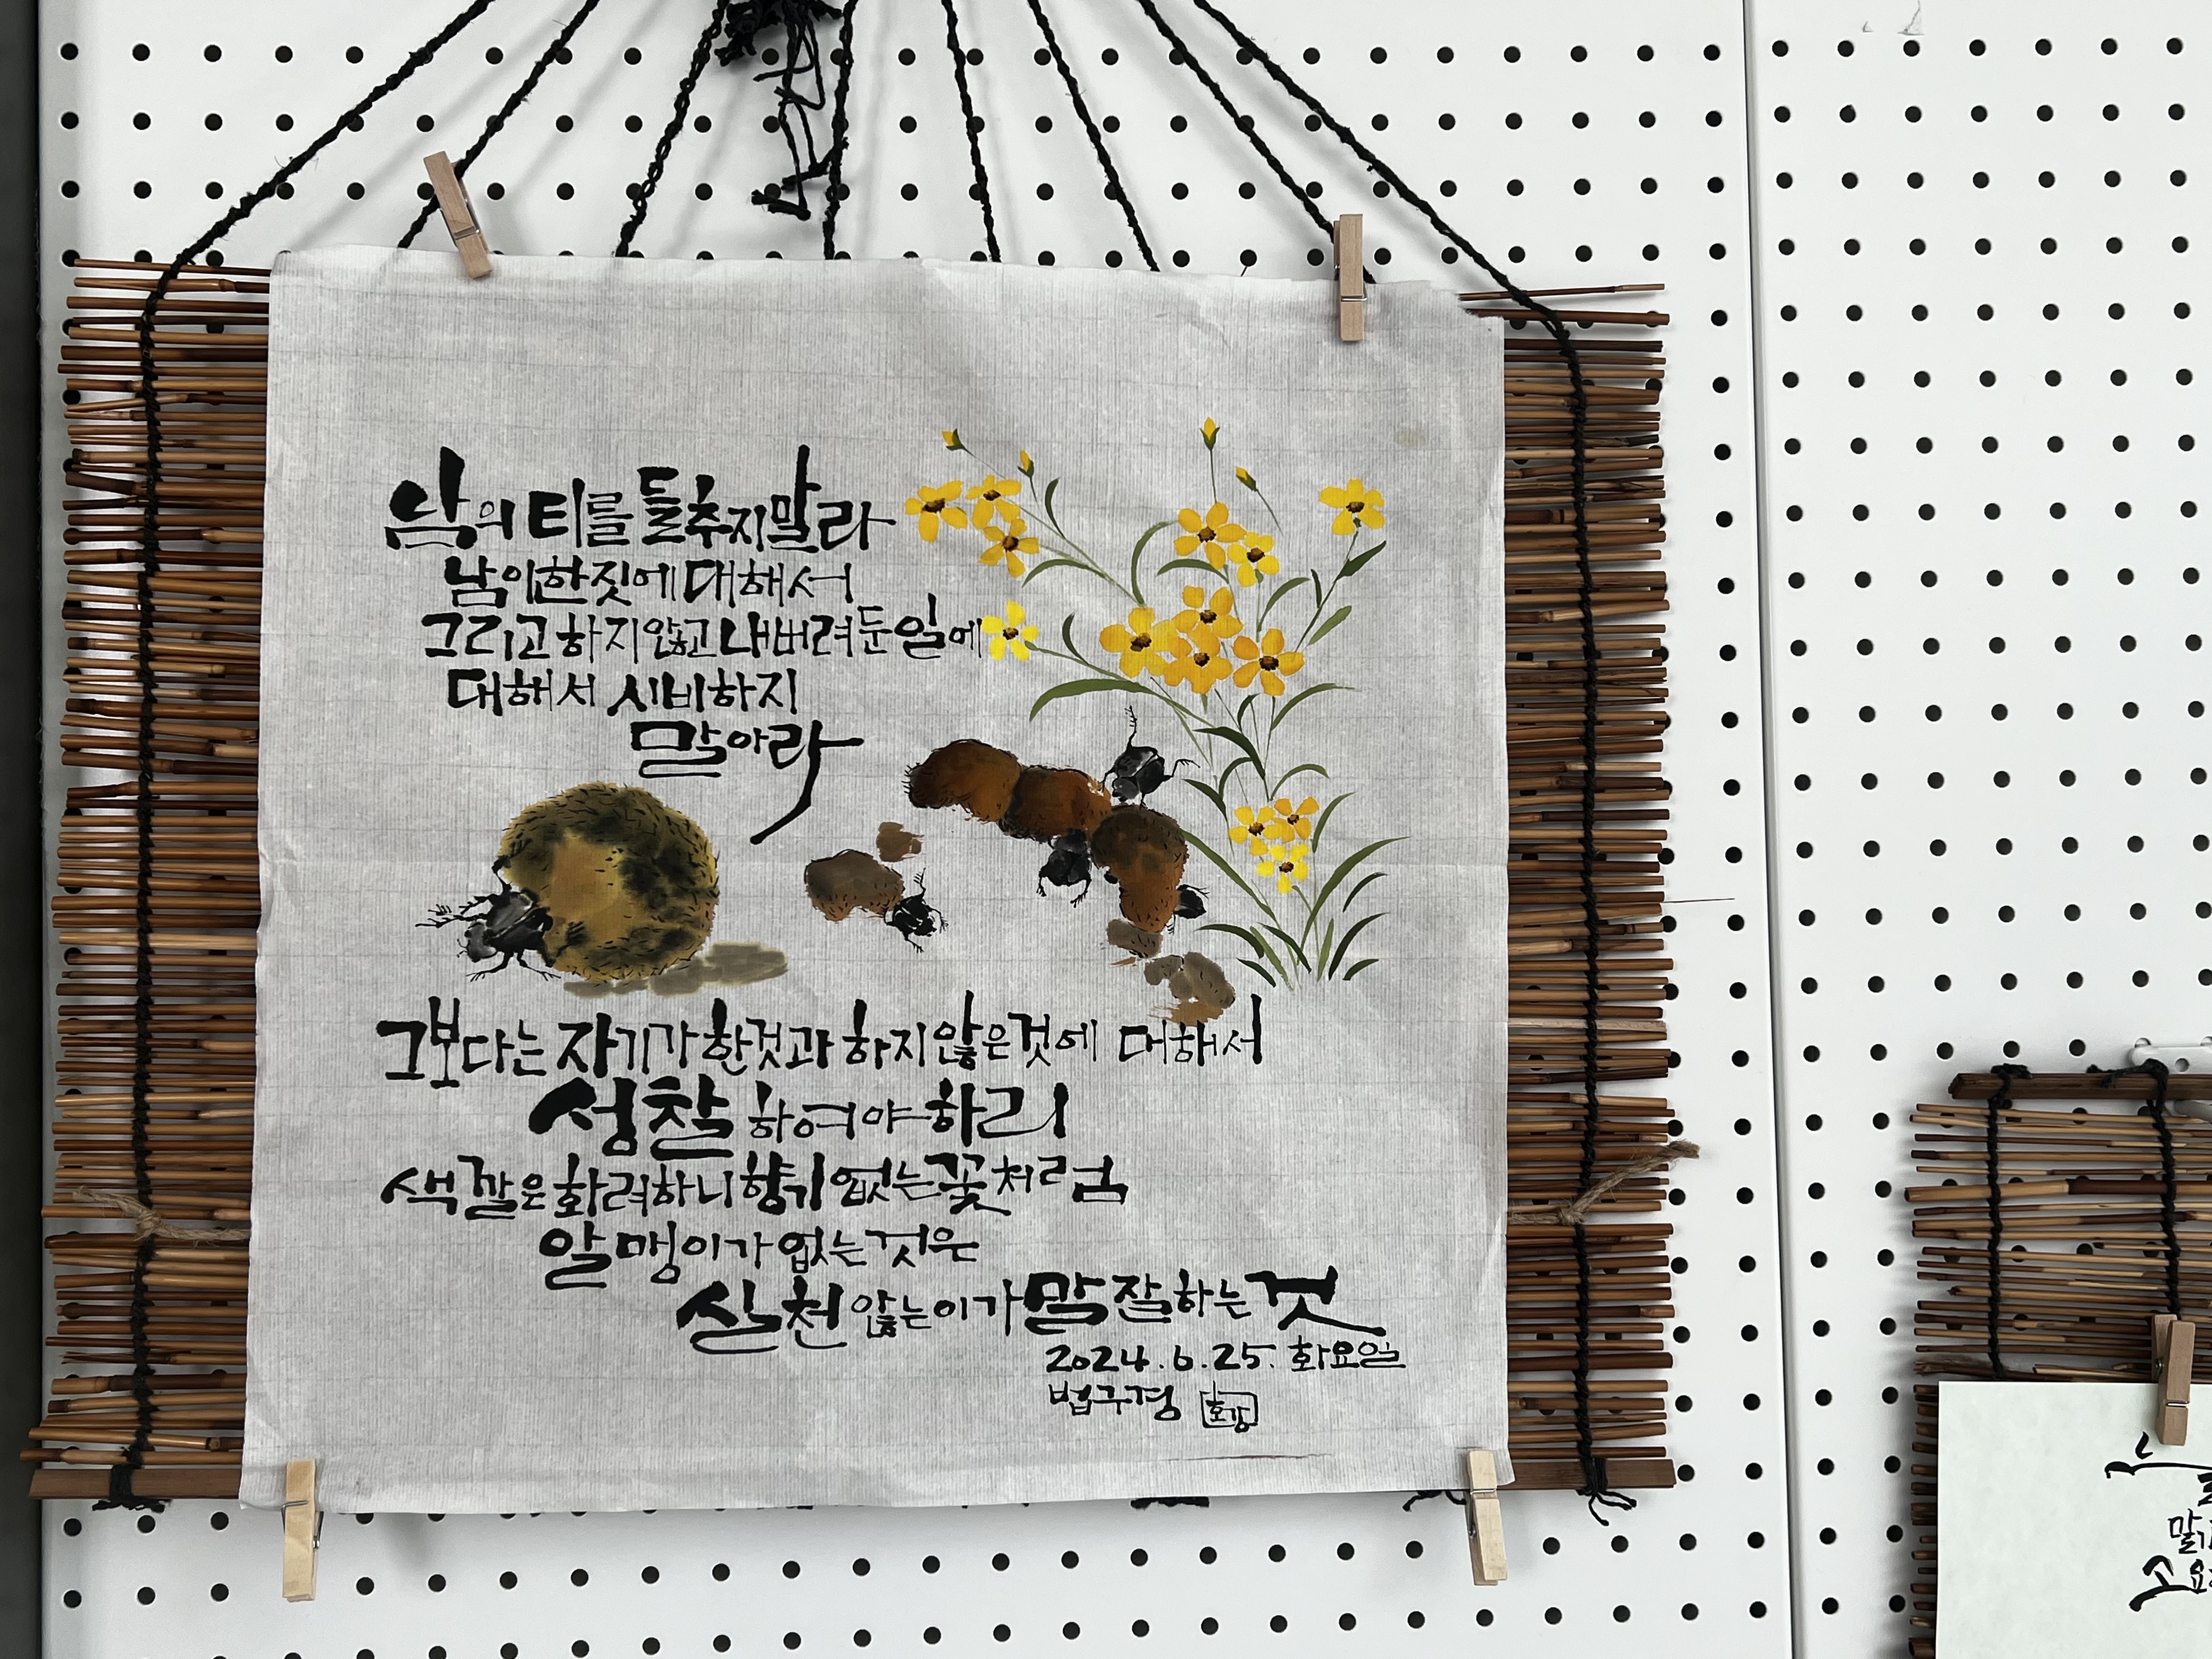 남의 티를 들추지 말라
남이 한 짓에 대해서
그리고 하지 않고 내버려 둔 일에
대해서 시비하지
말아라
그보다는 자기가 한것과 하지 않은 것에 대해서
성찰 하여야 하리
색깔은 화려하니 향기 없는 꽃처럼
알맹이가 없는 것은
실천 않는 이가 말 잘하는 것
2024.6.25. 화요일
법구경